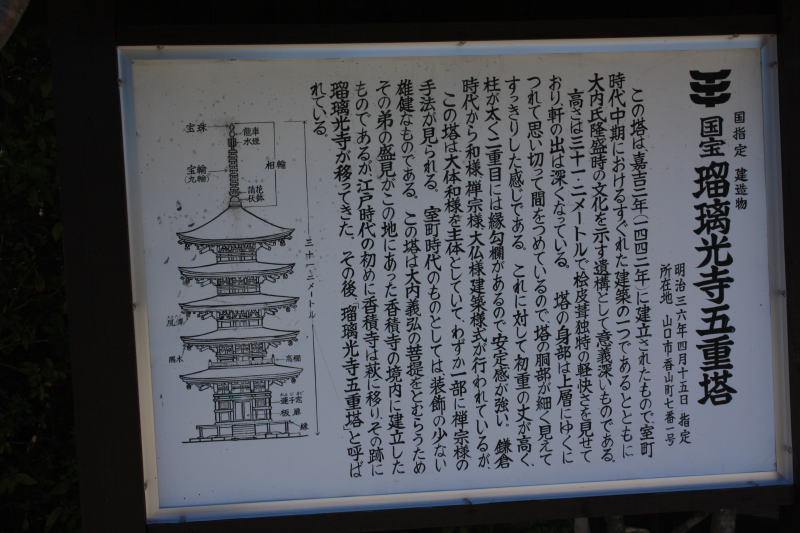 国指定 建造物
国宝 瑠璃光寺五重塔
明治三六年四月十五日 指定
所在地 山口市香山町七番一号
この塔は嘉吉二年(一四四二年)に建立されたもので、室町
時代中期におけるすぐれた建築の一つであるとともに
大内氏隆盛時の文化を示す遺構として意義深いものである。
高さは三十一・二メートルで、桧皮葺独特の軽快さを見せて
おり軒の出は深くなっている。 塔の身部は上層にゆくに
つれて思い切って間をつめているので、塔の胴部が細く見えて
すっきりした感じである。 これに対して初重の丈が高く、
柱が太く、二重目には縁勾欄があるので安定感が強い。 鎌倉
時代から和様、禅宗様、大仏様建築様式が行われているが、
この塔は大体和様を主体としていて、わずか一部に禅宗様の
手法が見られる。 室町時代のものとしては、装飾の少ない
雄健なものである。 この塔は大内義弘の菩提をとむらうため
その弟の盛見がこの地にあった香積寺の境内に建立した
ものであるが、江戸時代の初めに香積寺は萩に移り、その跡に
瑠璃光寺が移ってきた。 その後、「瑠璃光寺五重塔」と呼ば
れている。
宝珠
竜車
水煙
相輪
宝輪
(九輪)
請花
伏鉢
三十一・二メートル
風鐸
隅木
高欄
れんじまど
連子窓
板扉
縁